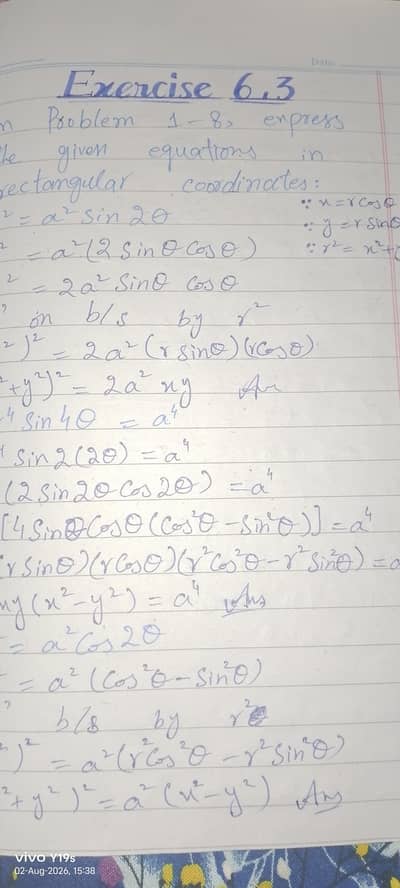 Date
Exercise 6.3
Problem 1-8, express
given equations in
rectangular coordinates:
∵ x = r cos θ
² = a² sin 2θ
∵ y = r sin θ
² = a² (2 sin θ cos θ)
∵ r² = x² +
² = 2a² sin θ cos θ
on b/s by r²
²)² = 2a² (r sin θ)(r cos θ)
+y²)² = 2a² xy Ans
⁴ sin 4θ = a⁴
sin 2(2θ) = a⁴
(2 sin 2θ cos 2θ) = a⁴
[4 sin θ cos θ (cos² θ - sin² θ)] = a⁴
(r sin θ)(r cos θ)(r² cos² θ - r² sin² θ) = a
xy (x² - y²) = a⁴ Ans
= a² cos 2θ
= a² (cos² θ - sin² θ)
b/s by r²
²)² = a² (r² cos² θ - r² sin² θ)
² + y²)² = a² (x² - y²) Ans
vivo Y19s
02-Aug-2026, 15:38